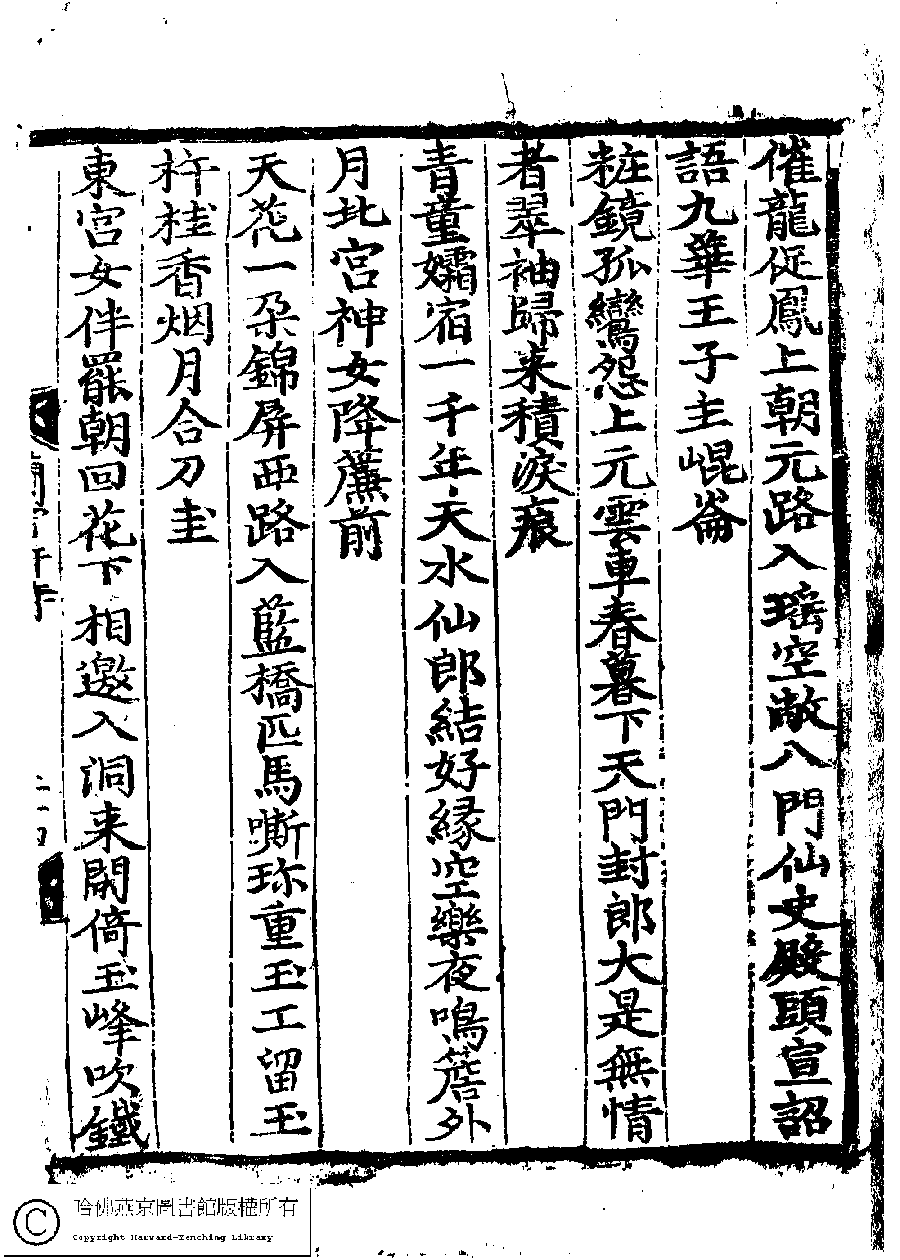 催龍促鳳上朝元路入瑤空敞八門仙史殿頭宣詔
語九華王子主崐崙
粧鏡孤鸞怨上元雲車春暮下天門封郎大是無情
者翠袖歸来積淚痕
青童孀宿一千年天水仙郎結好緣空樂夜鳴簷外
月北宮神女降簾前
天花一朶錦屏西路入藍橋匹馬嘶珎重玉工留玉
杵桂香烟月合刀圭
東宮女伴罷朝回花下相邀入洞来閑倚玉峰吹鐵
二十四
哈佛燕京圖書館版權所有
Copyright Harvard-Yenching Library